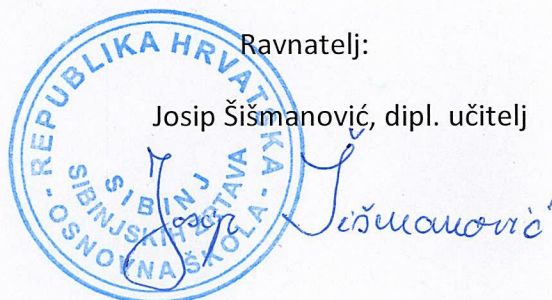 Ravnatelj:
Josip Šišmanović, dipl. učitelj
REPUBLIKA HRVATSKA
- OSNOVNA ŠKOLA -
SIBINJSKIH ŽRTAVA
SIBINJ
Josip Šišmanović